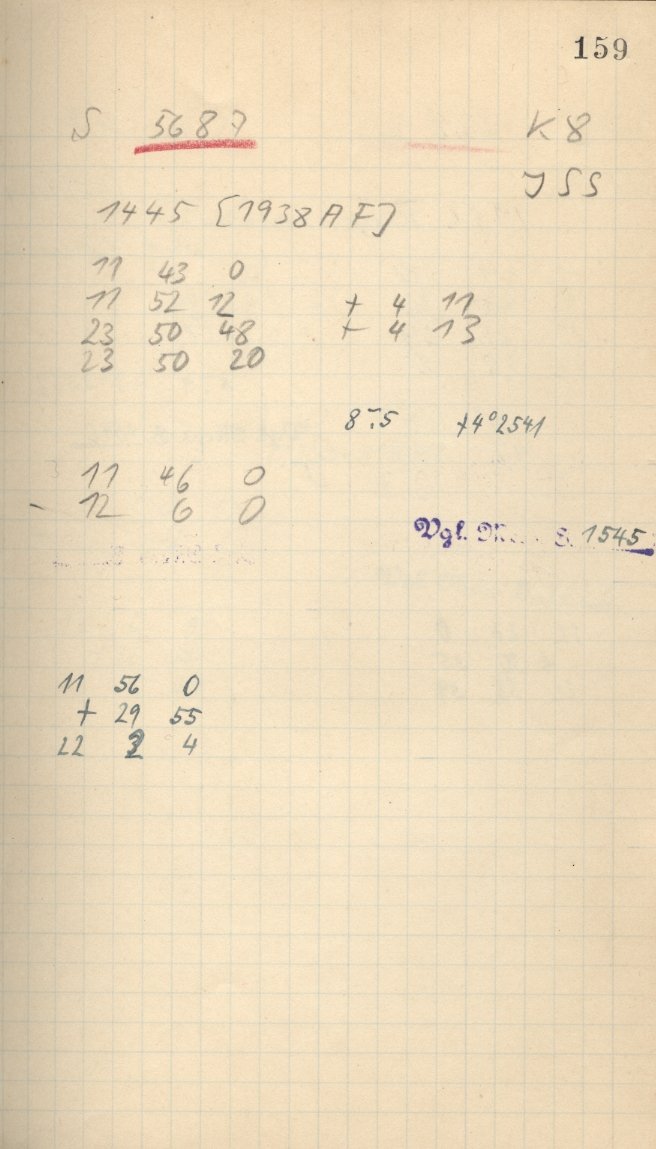 159
S 5687 K8
JSS
1445 [1938 AF]
11 43 0
11 52 12 + 4 11
23 50 48 + 4 13
23 50 20
8-:5 +4°2541
11 46 0
- 12 6 0
Vgl. 1545
11 56 0
+ 29 55
22 2 4